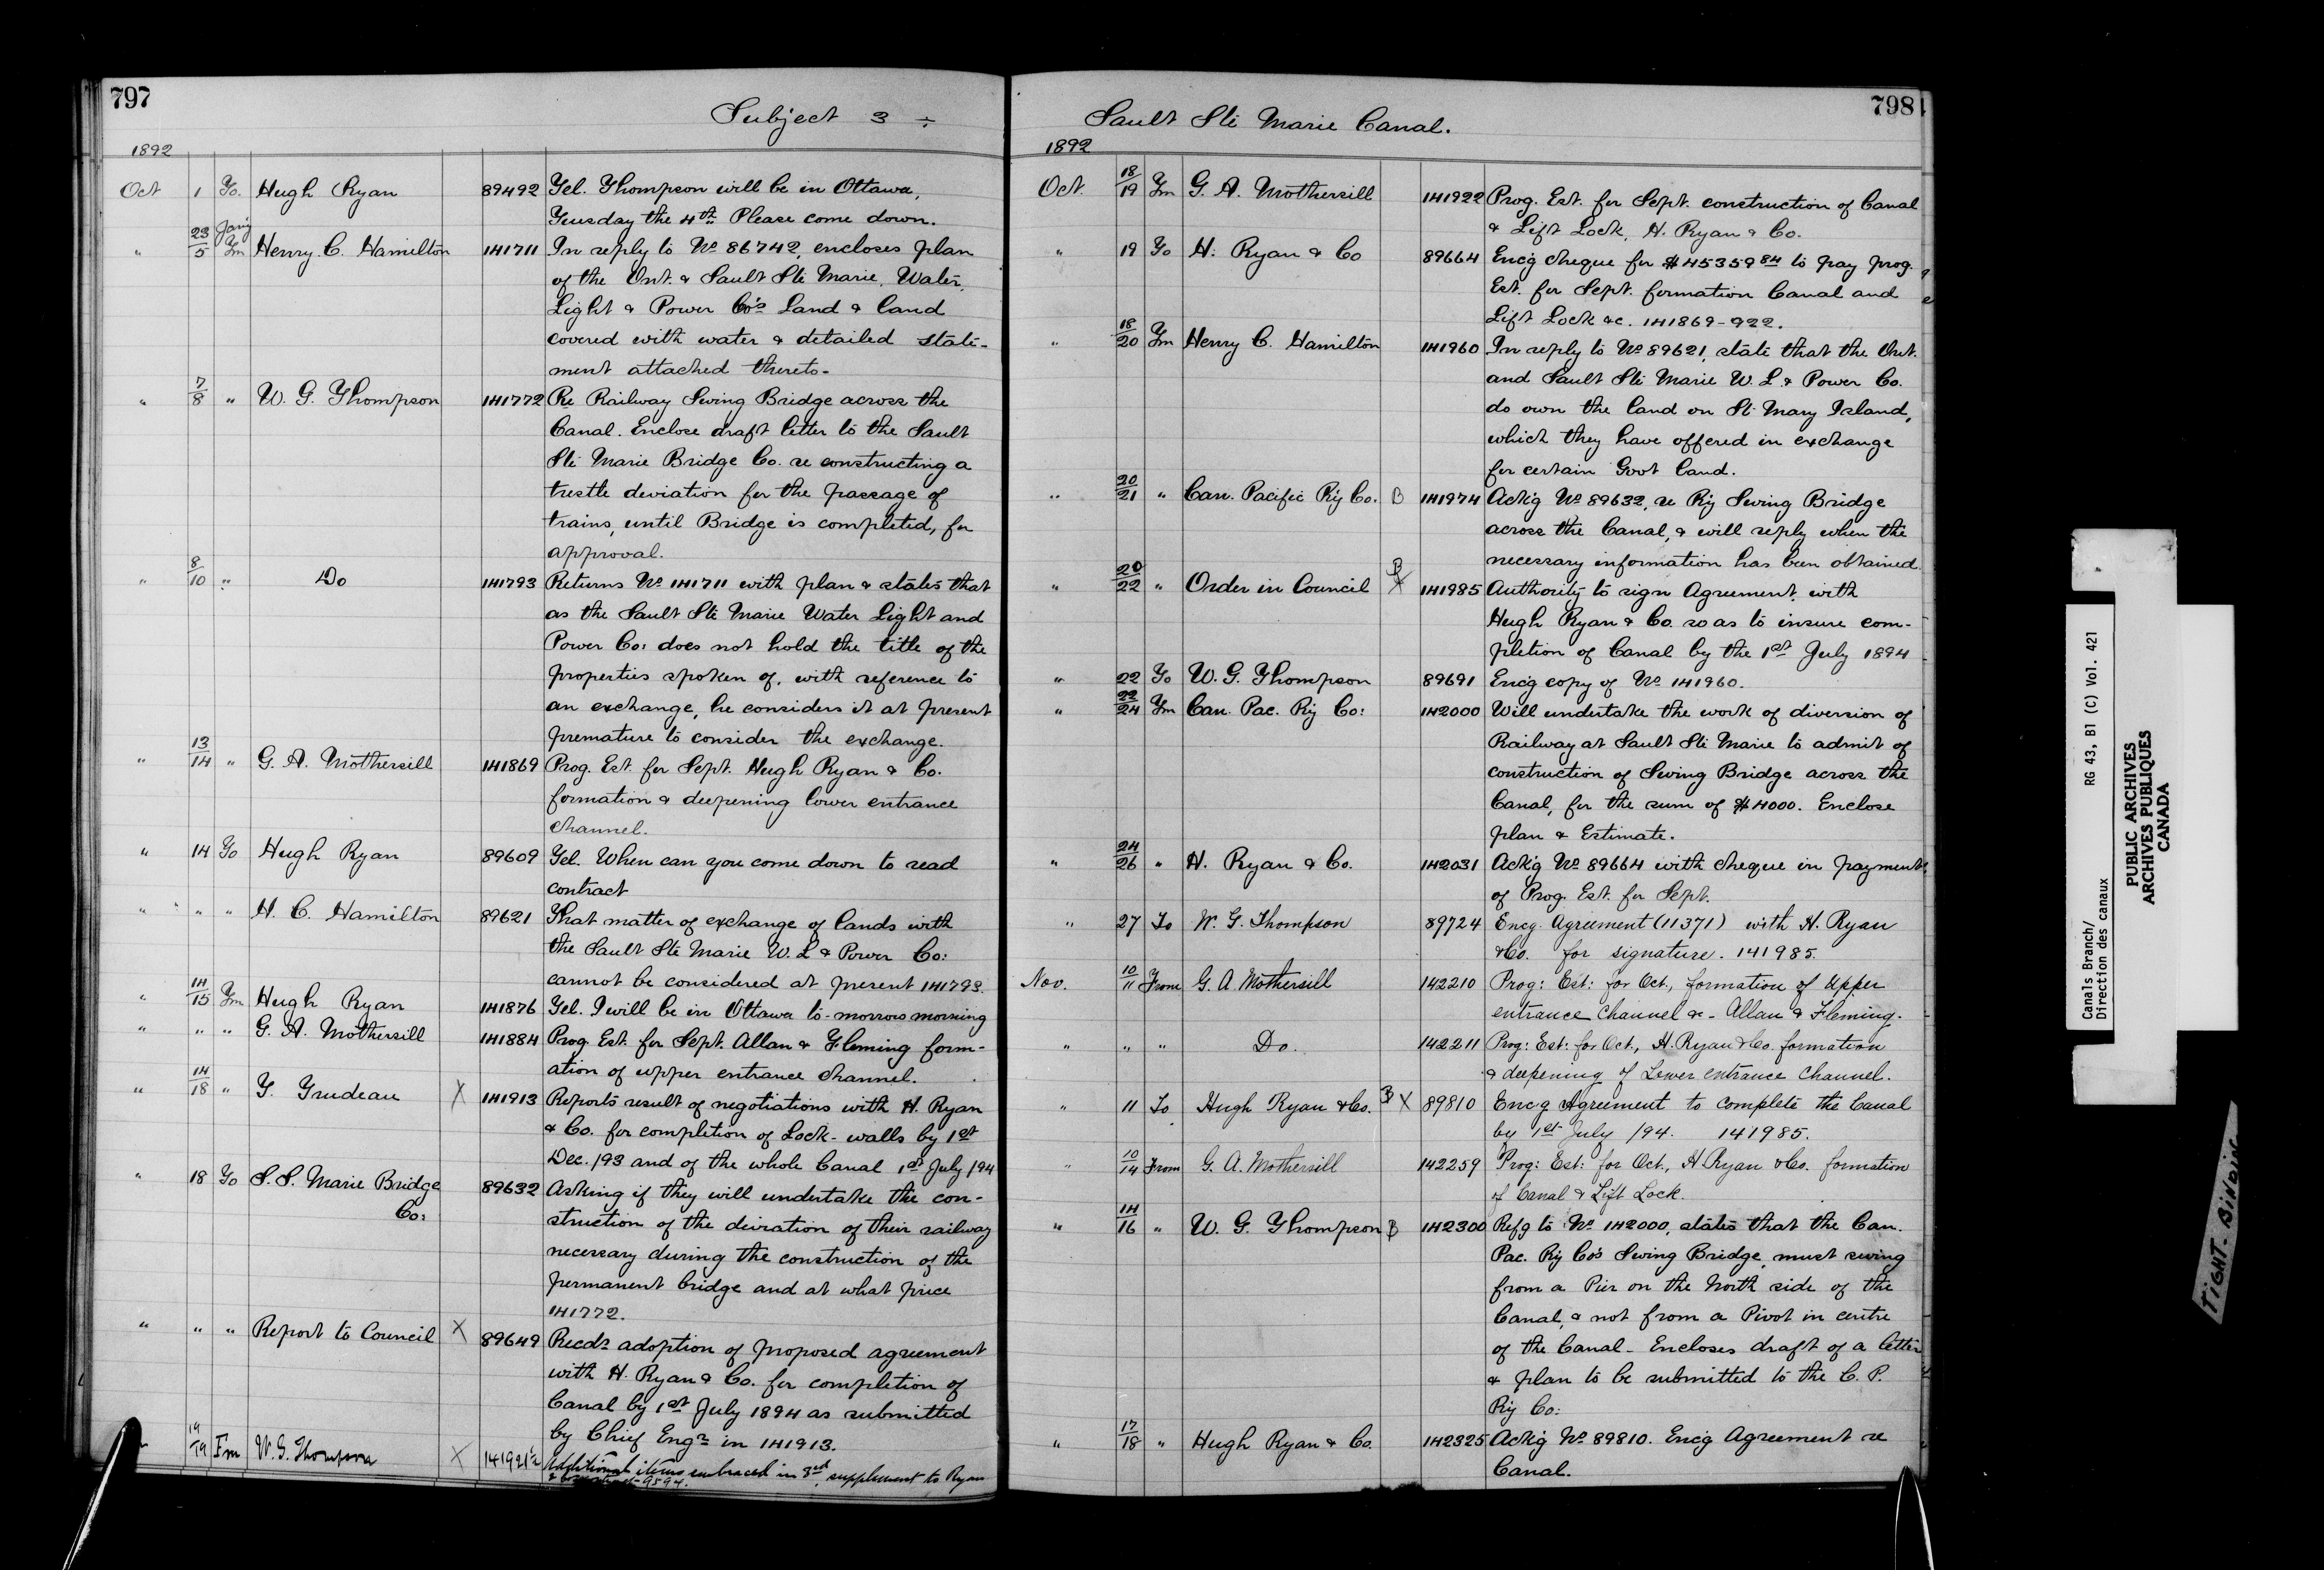 797
Subject 3 ÷
1892
Oct 1 To. Hugh Ryan 89492 Tel. Thompson will be in Ottawa,
Tuesday the 4th. Please come down.
" 23/5 Jany Fm Henry C. Hamilton 141711 In reply to No. 86742, encloses plan
of the Ont. & Sault Ste Marie, Water,
Light & Power Co's Land & land
covered with water & detailed state-
ment attached thereto-
" 7/8 " W. G. Thompson 141772 Re Railway Swing Bridge across the
Canal. Enclose draft letter to the Sault
Ste Marie Bridge Co. re constructing a
trestle deviation for the passage of
trains, until Bridge is completed, for
approval.
" 8/10 " Do 141793 Returns No. 141711 with plan & states that
as the Sault Ste Marie Water Light and
Power Co: does not hold the title of the
properties spoken of, with reference to
an exchange, he considers it at present
premature to consider the exchange.
" 13/14 " G. A. Mothersill 141869 Prog. Est. for Sept. Hugh Ryan & Co.
formation & deepening lower entrance
channel.
" 14 To Hugh Ryan 89609 Tel. When can you come down to read
contract
" " " H. C. Hamilton 89621 That matter of exchange of lands with
the Sault Ste Marie W. L & Power Co:
cannot be considered at present 141793.
" 14/15 Fm Hugh Ryan 141876 Tel. I will be in Ottawa to-morrow morning
" " " G. A. Mothersill 141884 Prog. Est. for Sept. Allan & Fleming form-
ation of upper entrance channel.
" 14/18 " T. Trudeau X 141913 Reports result of negotiations with H. Ryan
& Co. for completion of Lock-walls by 1st
Dec. /93 and of the whole Canal 1st July /94
" 18 To S. S. Marie Bridge 89632 Asking if they will undertake the con-
Co: struction of the deviation of their railway
necessary during the construction of the
permanent bridge and at what price
141772.
" " " Report to Council X 89649 Recds adoption of proposed agreement
with H. Ryan & Co. for completion of
Canal by 1st July 1894 as submitted
by Chief Engr in 141913.
19/19 Fm W. G. Thompson X 141921½ Additional items embraced in 3rd supplement to Ryan
9594.
798
Sault Ste Marie Canal.
1892
Oct. 18/19 Fm G. A. Mothersill 141922 Prog. Est. for Sept. construction of Canal
& Lift Lock, H. Ryan & Co.
" 19 To H. Ryan & Co 89664 Encg cheque for $45359 84 to pay prog.
Est. for Sept. formation Canal and
Lift Lock &c. 141869-922.
" 18/20 Fm Henry C. Hamilton 141960 In reply to No. 89621, state that the Ont.
and Sault Ste Marie W. L & Power Co.
do own the land on St. Mary Island,
which they have offered in exchange
for certain Govt land.
" 20/21 " Can. Pacific Ry Co. B 141974 Ackg No. 89632, re Ry Swing Bridge
across the Canal, & will reply when the
necessary information has been obtained.
" 20/22 " Order in Council B X 141985 Authority to sign Agreement with
Hugh Ryan & Co. so as to insure com-
pletion of Canal by the 1st July 1894
" 22 To W. G. Thompson 89691 Encg copy of No. 141960.
" 22/24 Fm Can. Pac. Ry Co: 142000 Will undertake the work of diversion of
Railway at Sault Ste Marie to admit of
construction of Swing Bridge across the
Canal, for the sum of $4000. Enclose
plan & Estimate.
" 24/26 " H. Ryan & Co. 142031 Ackg No. 89664 with cheque in payment
of Prog. Est. for Sept.
" 27 To W. G. Thompson 89724 Encg. Agreement (11371) with H. Ryan
&Co. for signature. 141985.
Nov. 10/11 From G. A. Mothersill 142210 Prog: Est: for Oct., formation of Upper
entrance channel &c - Allan & Fleming.
" " " Do. 142211 Prog: Est: for Oct., H. Ryan & Co. formation
& deepening of Lower entrance channel.
" 11 To Hugh Ryan &Co. B X 89810 Encg Agreement to complete the Canal
by 1st July /94. 141985.
" 10/14 From G. A. Mothersill 142259 Prog: Est: for Oct., H. Ryan &Co. formation
of Canal & Lift Lock.
" 14/16 " W. G. Thompson B 142300 Refg to No. 142000, states that the Can.
Pac. Ry Co's Swing Bridge, must swing
from a Pier on the North side of the
Canal, & not from a Pivot in centre
of the Canal - Encloses draft of a letter
& plan to be submitted to the C. P.
Ry Co:
" 17/18 " Hugh Ryan & Co. 142325 Ackg No. 89810. Encg Agreement re
Canal.
Canals Branch/ RG 43, B1 (C) Vol. 421
Direction des canaux
PUBLIC ARCHIVES
ARCHIVES PUBLIQUES
CANADA
TIGHT BINDING